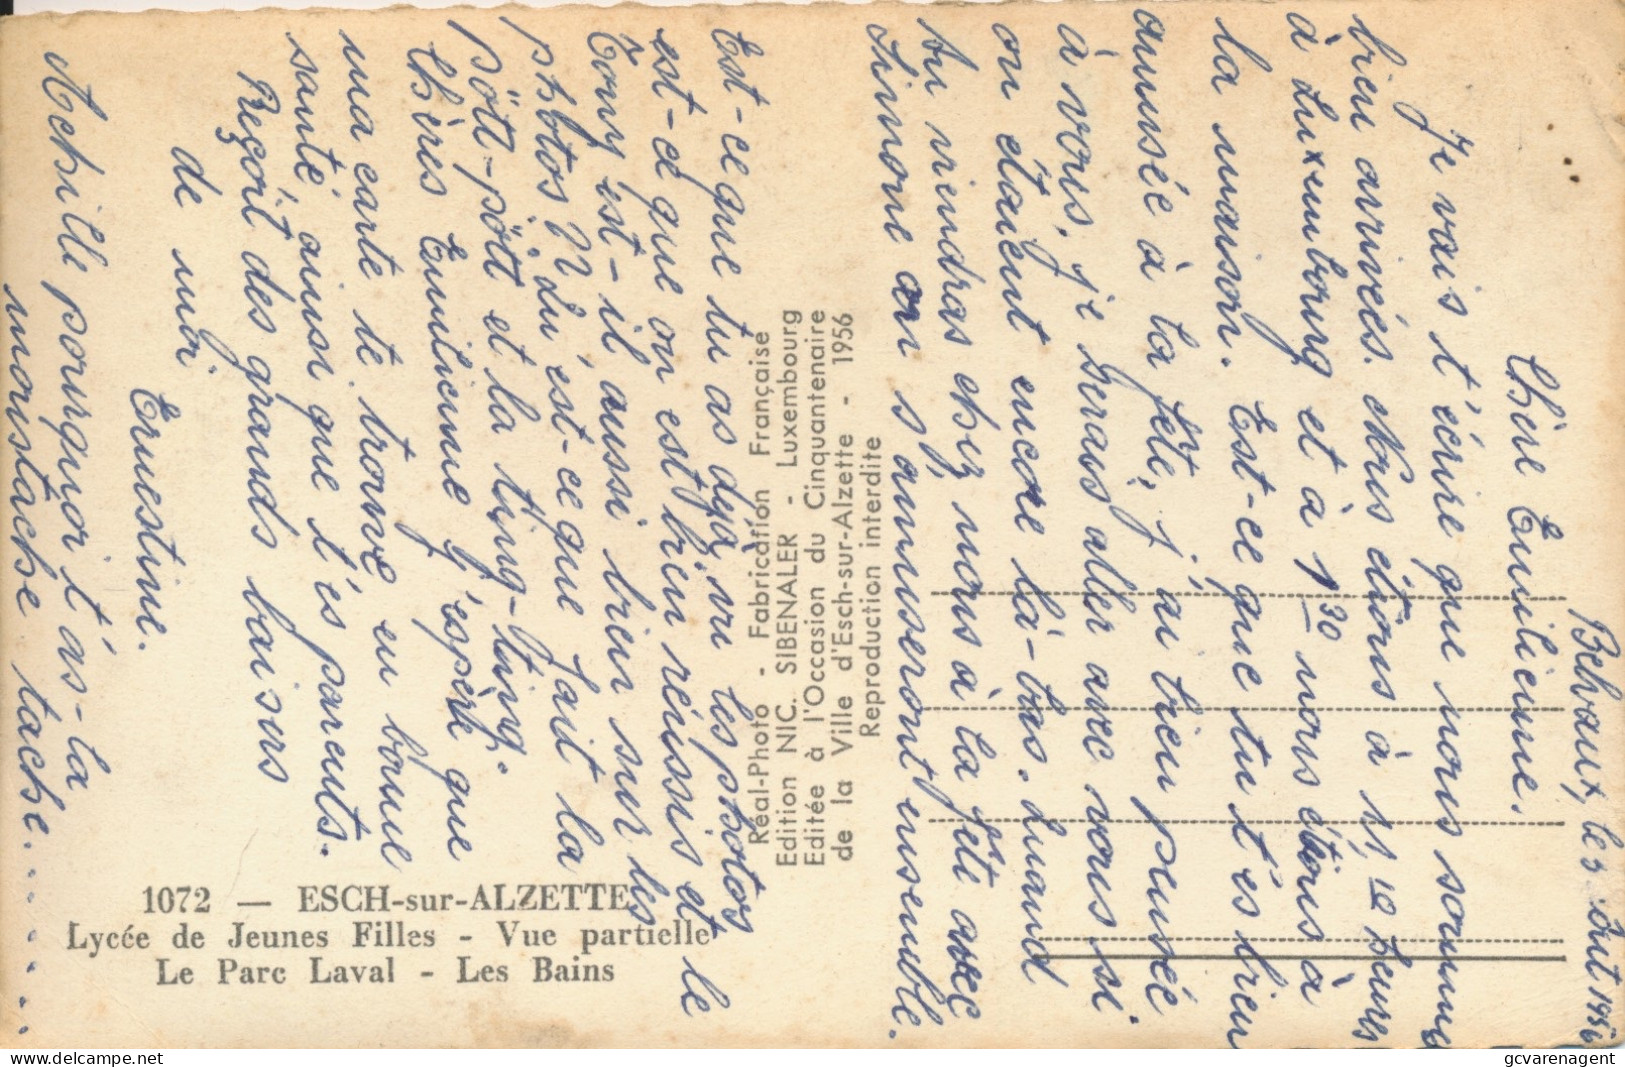 Belvaux, le 3 Août 1956
Chère Emilienne.
Je vais t'écrire que nous sommes
bien arrivés. Nous étions à 11,10 heures
à Luxembourg et à 1 30 nous étions à
la maison. Est-ce que tu t'es bien
amusée à la fête, j'ai bien pensée
à vous, je serais aller avec vous si
on étaient encore là-bas. Quand
tu viendras chez nous à la fête avec
Simone on s'amuseront ensemble.
Est-ce que tu as deja vu les photos
est-ce que on est bien réussis et le
Tony est-il aussi bien sur les
photos?? Qu'est-ce que fait la
pött-pött et la ting-ting.
Chères Emilienne j'espère que
ma carte te trouve en bonne
santé ainsi que t'es parents.
Reçoit des grands baisers
de moi.
Ernestine.
Achille pourquoi t'as-la
moistache tache........
Réal-Photo - Fabrication Française
Edition NIC. SIBENALER - Luxembourg
Editée à l'Occasion du Cinquantenaire
de la Ville d'Esch-sur-Alzette - 1956
Reproduction interdite
1072 — ESCH-sur-ALZETTE
Lycée de Jeunes Filles - Vue partielle
Le Parc Laval - Les Bains
gcvarenagent